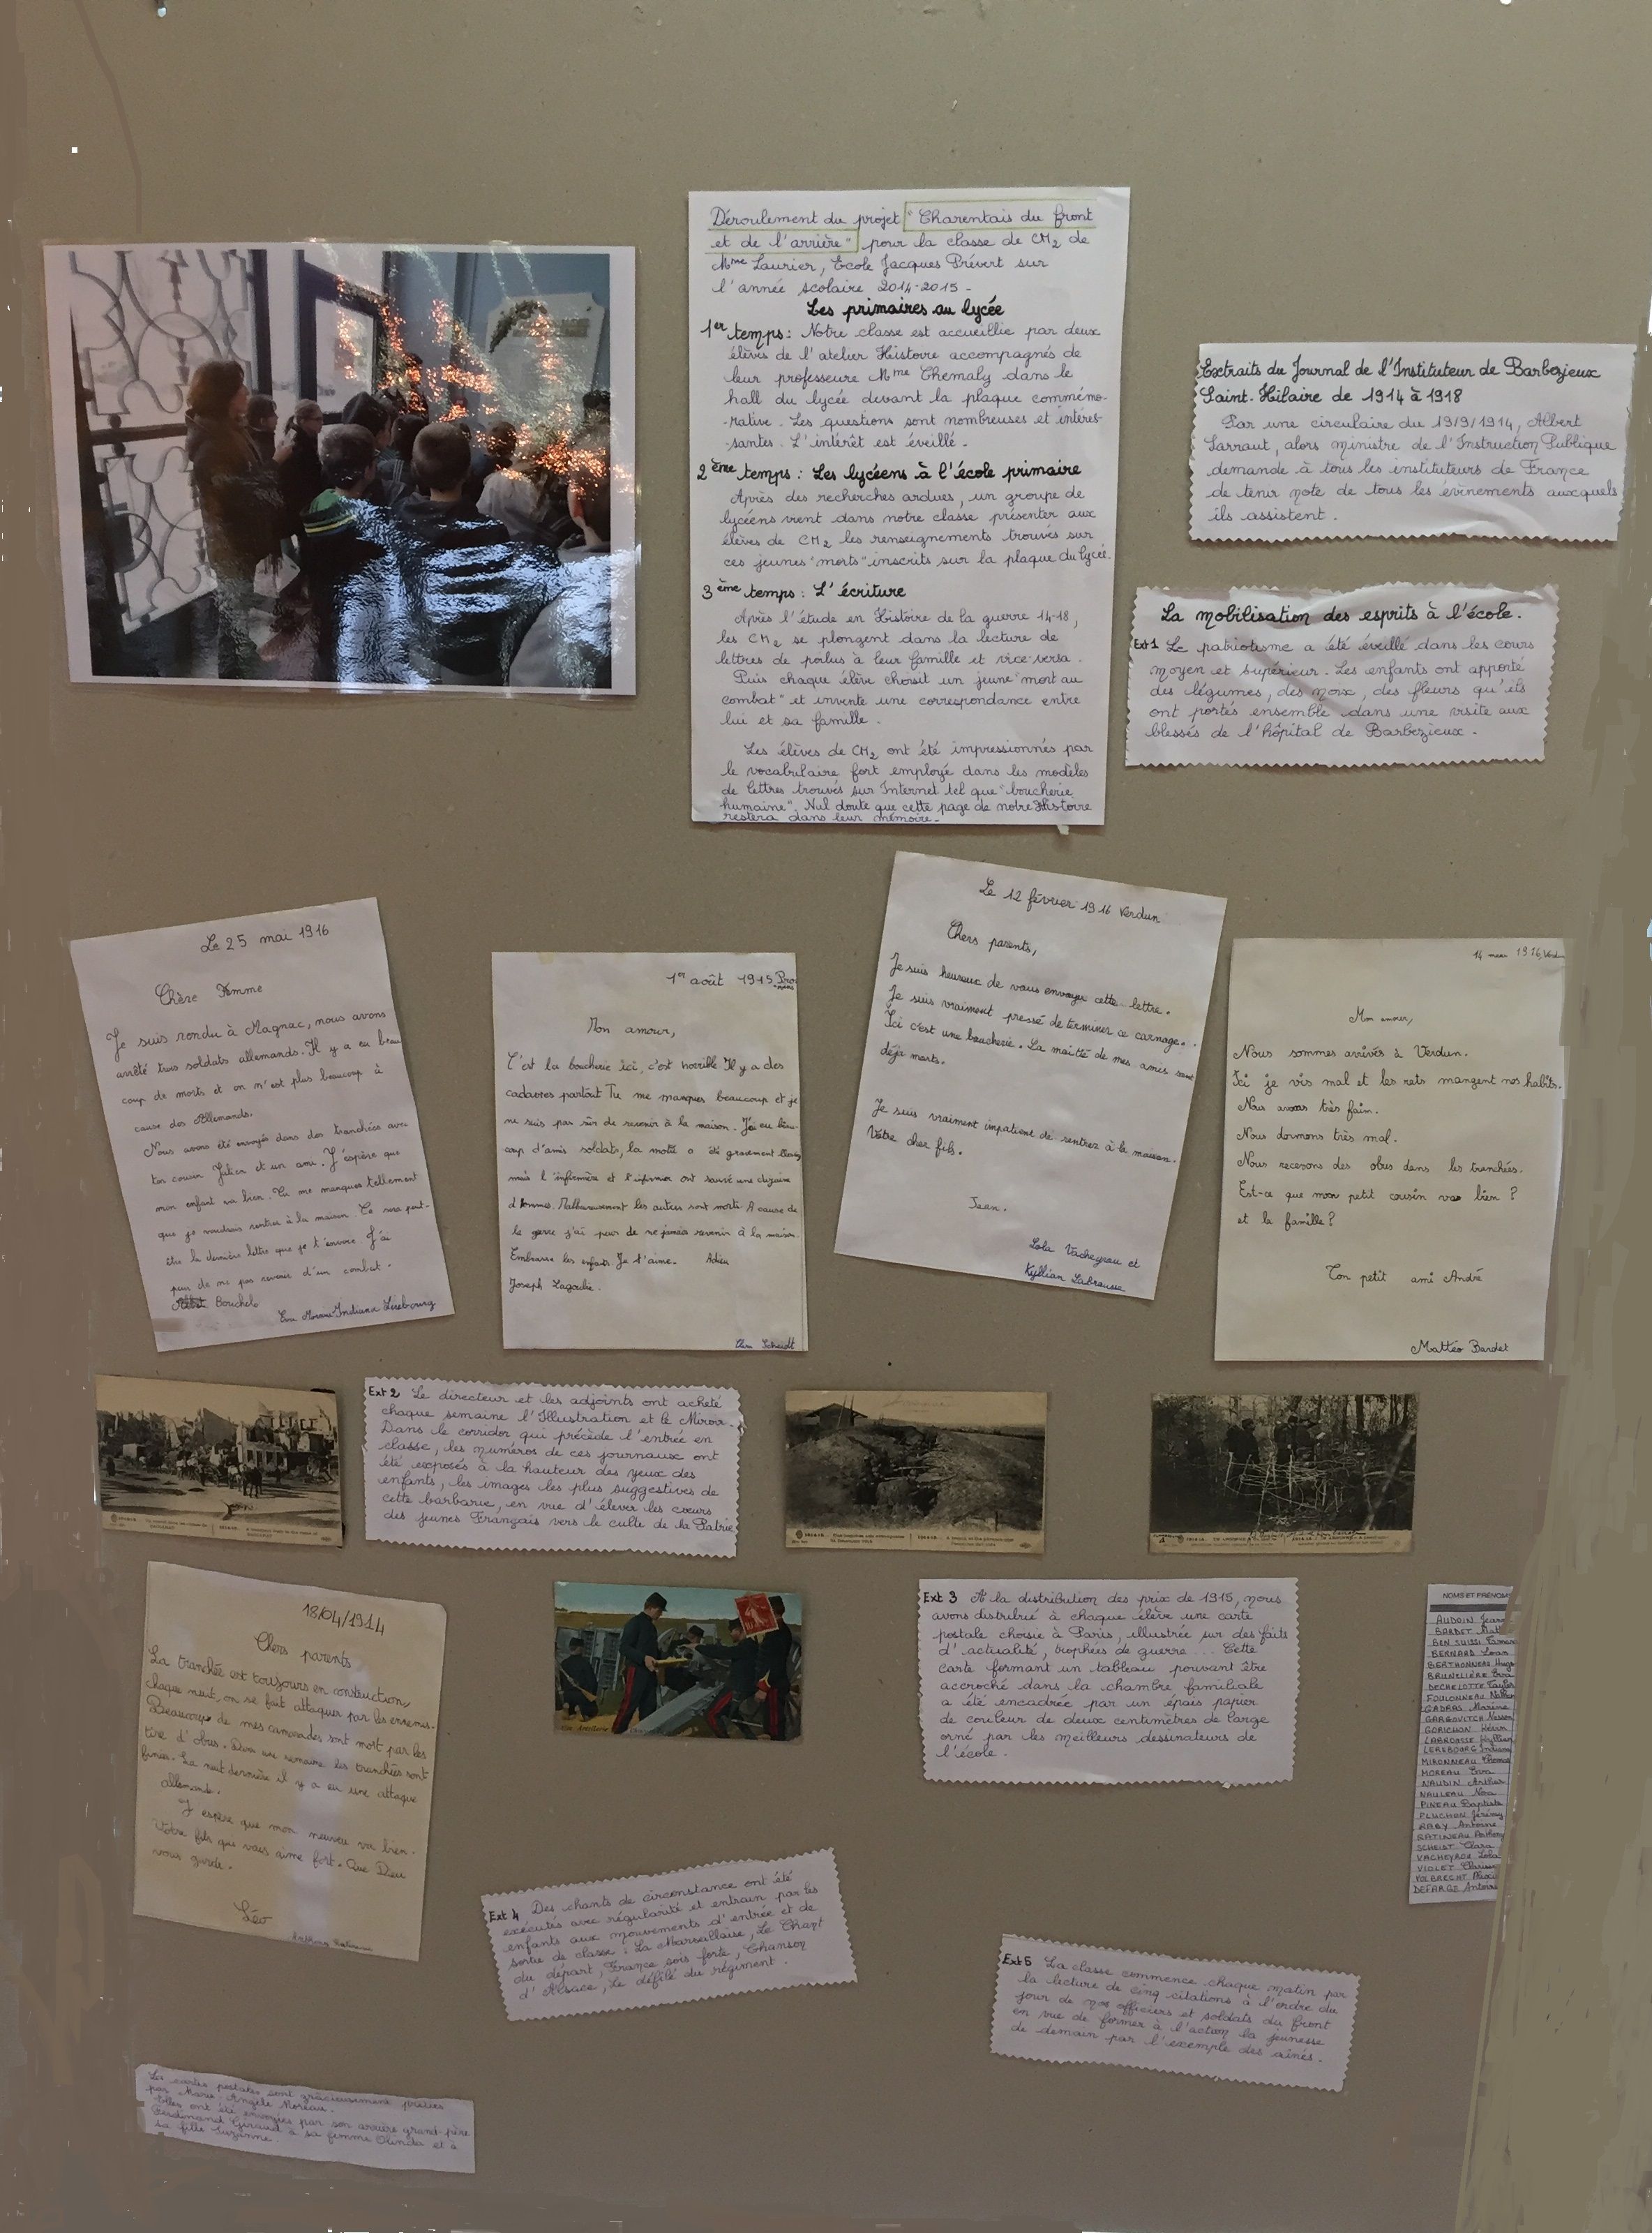 Déroulement du projet "Charentais du front
et de l'arrière" pour la classe de CM2 de
Mme Laurier, Ecole Jacques Prévert sur
l'année scolaire 2014-2015 -
Les primaires au lycée
1er temps : Notre classe est accueillie par deux
élèves de l'atelier Histoire accompagnés de
leur professeure Mme Chemaly dans le
hall du lycée devant la plaque commémo-
-rative. Les questions sont nombreuses et intéres-
-santes. L'intérêt est éveillé.
2ème temps : Les lycéens à l'école primaire
Après des recherches ardues, un groupe de
lycéens vient dans notre classe présenter aux
élèves de CM2 les renseignements trouvés sur
ces jeunes "morts" inscrits sur la plaque du lycée.
3ème temps : L'écriture
Après l'étude en Histoire de la guerre 14-18,
les CM2 se plongent dans la lecture de
lettres de poilus à leur famille et vice-versa.
Puis chaque élève choisit un jeune "mort au
combat" et invente une correspondance entre
lui et sa famille.
Les élèves de CM2 ont été impressionnés par
le vocabulaire fort employé dans les modèles
de lettres trouvés sur Internet tel que "boucherie
humaine". Nul doute que cette page de notre Histoire
restera dans leur mémoire.
Extraits du Journal de l'Instituteur de Barbezieux
Saint-Hilaire de 1914 à 1918
Par une circulaire du 19/9/1914, Albert
Sarraut, alors ministre de l'Instruction Publique
demande à tous les instituteurs de France
de tenir note de tous les évènements auxquels
ils assistent.
La mobilisation des esprits à l'école.
Ext 1 Le patriotisme a été éveillé dans les cours
moyen et supérieur. Les enfants ont apporté
des légumes, des noix, des fleurs qu'ils
ont portés ensemble dans une visite aux
blessés de l'hôpital de Barbezieux.
Le 25 mai 1916
Chère Femme
Je suis rendu à Magnac, nous avons
arrêté trois soldats allemands. Il y a eu beau
coup de morts et on n'est plus beaucoup à
cause des Allemands.
Nous avons été envoyés dans des tranchées avec
ton cousin Julien et un ami. J'espère que
mon enfant va bien. Tu me manques tellement
que je voudrais rentrer à la maison. Ce sera peut-
être la dernière lettre que je t'envoie. J'ai
peur de ne pas revenir d'un combat.
Bouchelo
Eva Moreau Indiana Lerebourg
1er août 1915
Mon amour,
C'est la boucherie ici, c'est horrible Il y a des
cadavres partout Tu me manques beaucoup et je
ne suis pas sûr de revenir à la maison. J'ai eu beau-
coup d'amis soldats, la moitié a été gravement blessés
mais l'infirmière et l'infirmier ont sauvé une dizaine
d'hommes. Malheureusement les autres sont morts. A cause de
la guerre j'ai peur de ne jamais revenir à la maison.
Embrasse les enfants. Je t'aime. Adieu
Joseph Lagoulie.
Clara Scheidt
Le 12 février 1916 Verdun
Chers parents,
Je suis heureux de vous envoyer cette lettre.
Je suis vraiment pressé de terminer ce carnage.
Ici c'est une boucherie. La moitié de mes amis sont
déja morts.
Je suis vraiment impatient de rentrer à la maison.
Votre cher fils.
Jean.
Lola Vacheyrou et
Kyllian Labrousse
14 mars 1916, Verdun
Mon amour,
Nous sommes arrivés à Verdun.
Ici je vis mal et les rats mangent nos habits.
Nous avons très faim.
Nous dormons très mal.
Nous recevons des obus dans les tranchées.
Est-ce que mon petit cousin va bien ?
et la famille ?
Ton petit ami André
Mattéo Bardet
Ext 2 Le directeur et les adjoints ont acheté
chaque semaine l'Illustration et le Miroir.
Dans le corridor qui précède l'entrée en
classe, les numéros de ces journaux ont
été exposés à la hauteur des yeux des
enfants, les images les plus suggestives de
cette barbarie, en vue d'élever les cœurs
des jeunes Français vers le culte de la Patrie
18/04/1914
Chers parents
La tranchée est toujours en constuction,
chaque nuit, on se fait attaquer par les ennemis.
Beaucoup de mes camarades sont mort par les
tirs d'obus. Dans une semaine les tranchées sont
finies. La nuit dernière il y a eu une attaque
allemande.
J'espère que mon neuveu va bien.
Votre fils qui vous aime fort. Que Dieu
vous garde.
Léo
Ext 3 A la distribution des prix de 1915, nous
avons distribué à chaque élève une carte
postale choisie à Paris, illustrée sur des faits
d'actualité, trophées de guerre... Cette
carte formant un tableau pouvant être
accroché dans la chambre familiale
a été encadrée par un épais papier
de couleur de deux centimètres de large
orné par les meilleurs dessinateurs de
l'école.
NOMS ET PRÉNOMS
AUDOIN
BARDET
BEN SUISSI
BERNARD
BERTHONNEAU Hugo
BRUNELIÈRE
DECHELOTTE
FOULONNEAU
GADRAS Maxime
GARGOVITCH
GORICHON
LABROUSSE Kyllian
LEREBOURG Indiana
MIRONNEAU Thomas
MOREAU Eva
NAUDIN Arthur
NAULEAU Noa
PINEAU Baptiste
PLUCHON Jérémy
RABY Antoine
RATINEAU Anthony
SCHEIST Clara
VACHEYROU Lola
VIOLET
VOLBRECHT
DEFARGE Antoine
Ext 4 Des chants de circonstance ont été
exécutés avec régularité et entrain par les
enfants aux mouvements d'entrée et de
sortie de classe : La Marseillaise, Le Chant
du départ, France sois forte, Chanson
d'Alsace, Le défilé du régiment.
Ext 5 La classe commence chaque matin par
la lecture de cinq citations à l'ordre du
jour de nos officiers et soldats du front
en vue de former à l'action la jeunesse
de demain par l'exemple des aînés.
Les cartes postales sont gracieusement prêtées
par Marie-Angèle Moreau.
Elles ont été envoyées par son arrière grand-père
Ferdinand Giraud à sa femme Olinda et à
sa fille Suzanne.